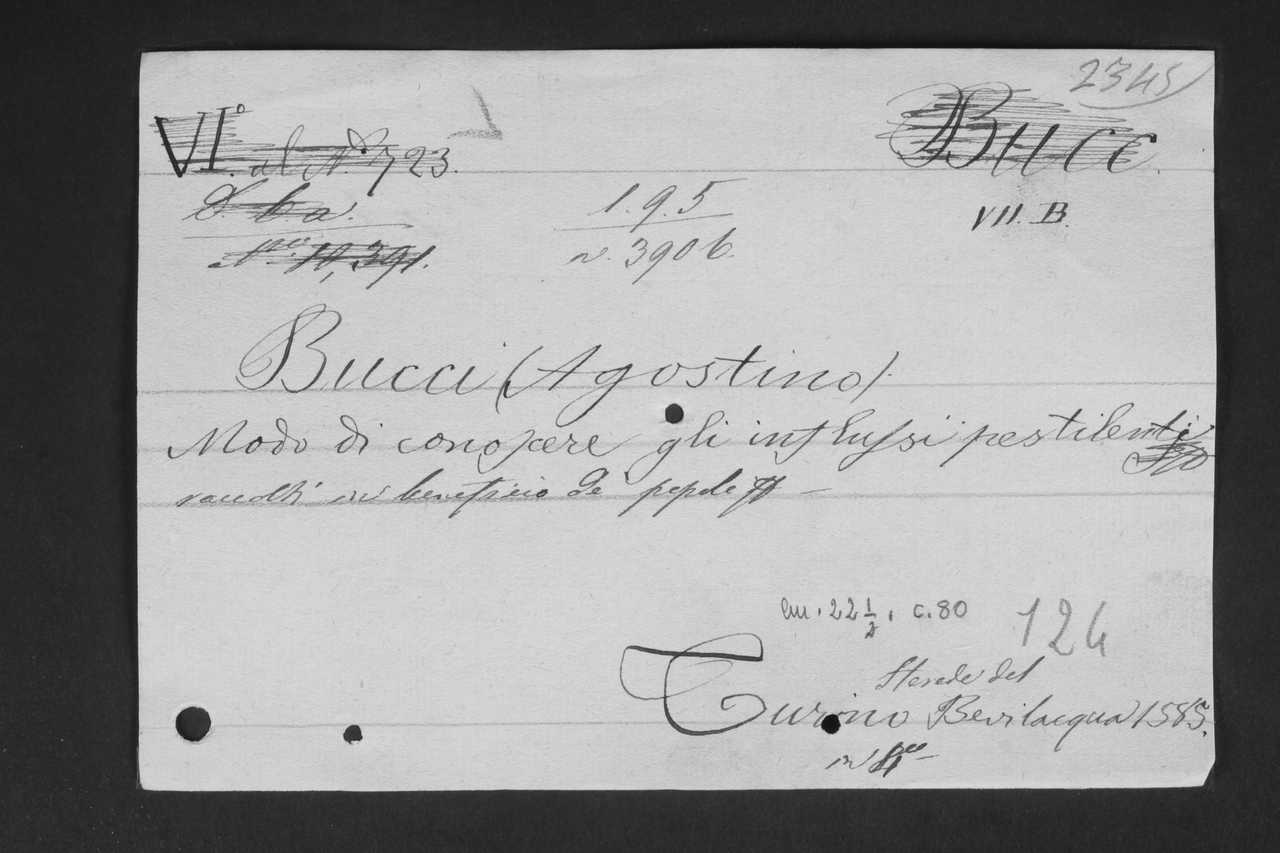 2345
VI.° al N.° 723.
Bucc.
S. b a.
1.9.5
VII. B.
N.ro 10,391.
n. 3906.
Bucci (Agostino)
Modo di conoscere gli influssi pestilenti
raccolti in beneficio de' popoli
cm. 22 1/2, c. 80
124
Herede del
Turino Bevilacqua 1585.
in 4°